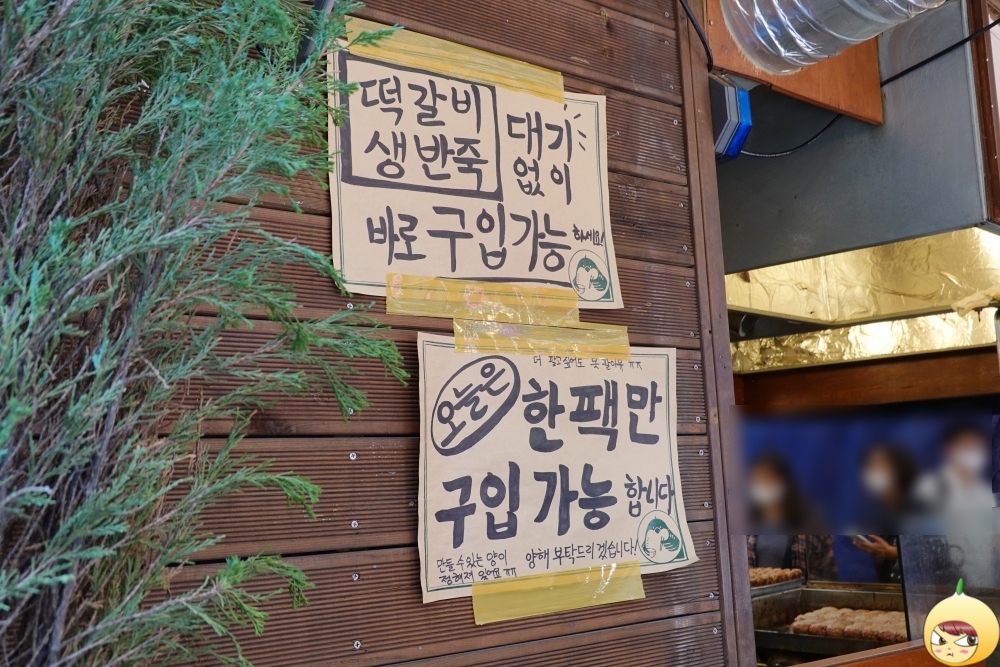 떡갈비
생반죽
대기
없이
바로 구입가능
하세요!
더 팔고싶어도 못 팔아유 ㅠㅠ
오늘은
한팩만
구입 가능 합니다
만들 수 있는 양이
정해져 있어요 ㅠㅠ
양해 부탁드리겠습니다!